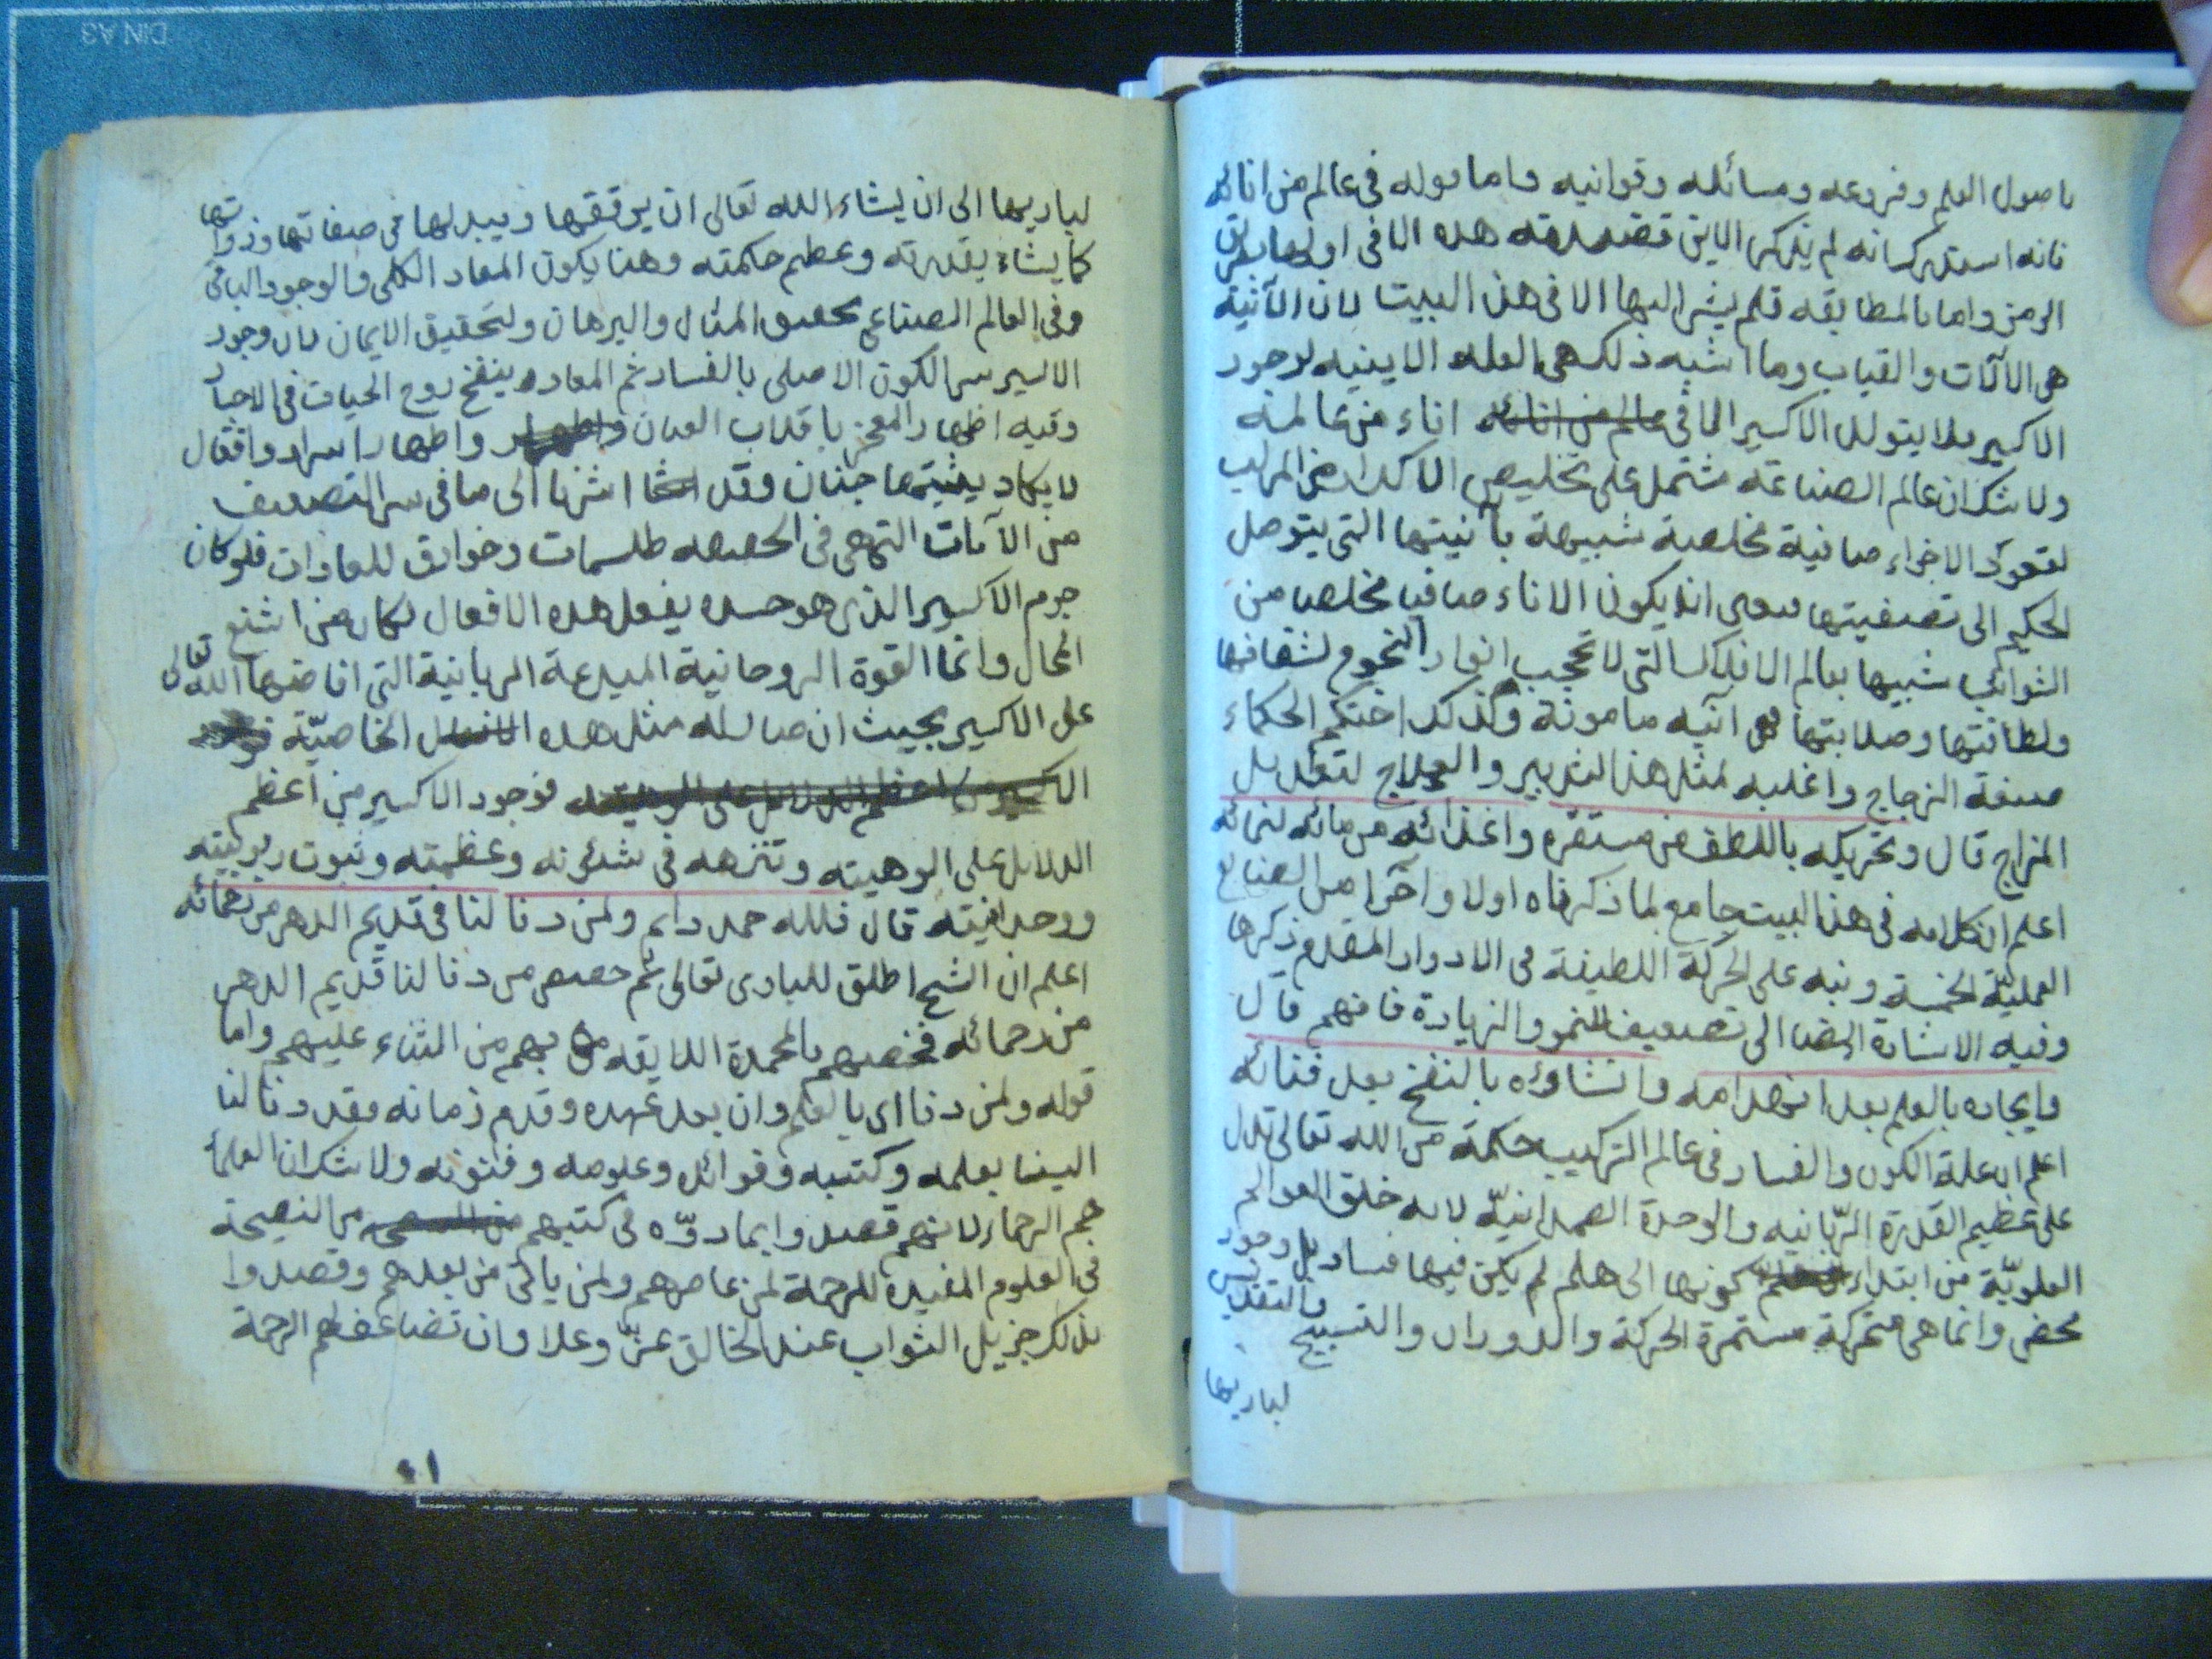 باصول العلم وفروعه ومسائله وقوانيه واما قوله في عالم من انائه
فانه استدرك انه لم يذكر الاين قصد هذه الا في اولها
الرمز واما بالمطابقه فلم يشر اليها الا في هذا البيت لان الآنية
هى الآلات والقباب وما اشبه ذلك هى العله الاينيه لوجود
الاكسير فلا يتولد الاكسير الا في اناء من عالمنه
ولا شك ان عالم الصناعة مشتمل على تخليص الاكدار من المركب
لتعود الاجزاء صافية مخلصة شبيهة بآنيتها التى يتوصل
الحكيم الى تصفيتها ان يكون الاناء صافيا مخلصا من
الشوائب شبيها بعالم الافلاك التى لا تحجب انوار النجوم لشفافها
ولطافتها وصلابتها فهى آنيه مامونة وكذلك احتكم الحكماء
صنعة الزجاج واغلبه لمثل هذا التدبير والعلاج لتعديل
المزاج قال وتحريكه باللطف من مستقره واغذائه من مائه
اعلم ان كلامه في هذا البيت جامع لما ذكرناه اولا وآخرا من الصنايع
العمليّة الخمسة ونبه على الحركة اللطيفة فى الادوار المقدم ذكرها
وفيه الاشارة ايضا الى تضعيف النمو والزيادة فافهم قال
وايجاده بالعلم بعد انهدامه وانشاؤه بالنفخ بعد فنائه
اعلم ان علة الكون والفساد فى عالم التركيب حكمة من الله تعالى تدل
على عظيم القدرة الرّبانيه والوحدة الصمدانيّه لانه خلق العوالم
العلويّة من ابتداء كونها الى هلم لم يكن فيها فساد بل وجود
محض وانما هى متحركة مستمرة الحركة والدوران والتسبيح والتقديس
لباريها
لباريها الى ان يشاء الله تعالى ان يرققها ويبدلها فى صفاتها وذواتها
كما يشاء بقدرته وعظيم حكمته وهنا يكون المعاد الكلى والوجود الباقى
وفى العالم الصناعى تحقيق المثال والبرهان ولتحقيق الايمان بان وجود
الاكسير سر الكون الاصلى بالفساد ثم المعاد وينفخ روح الحيات فى الاجساد
وفيه اظهار المعجز باقلاب العيان واظهار اسرار وافعال
لا يكاد يثبتها جنان وقد اشرنا الى ما فى سر التضعيف
من الآيات التى هى فى الحقيقه طلسمات وخوارق للعادات فلو كان
جرم الاكسير الذى هو جسده يفعل هذه الافعال لكان من اشنع
المحال وانما القوة الروحانية المبدعة الربانية التى افاضها الله تعالى
على الاكسير بحيث ان مثل هذه الخاصيّة
فوجود الاكسير من اعظم
الدلايل على الوهيته وتنزهه فى شئونه وعظمته وثبوت ربوبيته
ووحدانيته قال فلله حمد دايم ولمن دنا لنا فى قديم الدهر من رحمائه
اعلم ان الشيخ اطلق للبارى تعالى ثم خصص من دنا لنا قديم الدهر
من رحمائه فخصهم بالمحمدة اللايقه بهم من الثناء عليهم واما
قوله ولمن دنا اى بالعلم وان بعد عهده وقدم زمانه فقد دنا لنا
الينا بعلمه وكتبه وفوائد وعلومه وفنونه ولا شك ان العلماء
هم الرحماء لانهم قصدوا بما دوّنوه فى كتبهم من النصيحة
فى العلوم المفيده للرحمة لمن عاصرهم ولمن ياتى من بعدهم وقصدوا
بذلك جزيل الثواب عند الخالق عزّ وعلا وان تضاعف لهم الرحمة